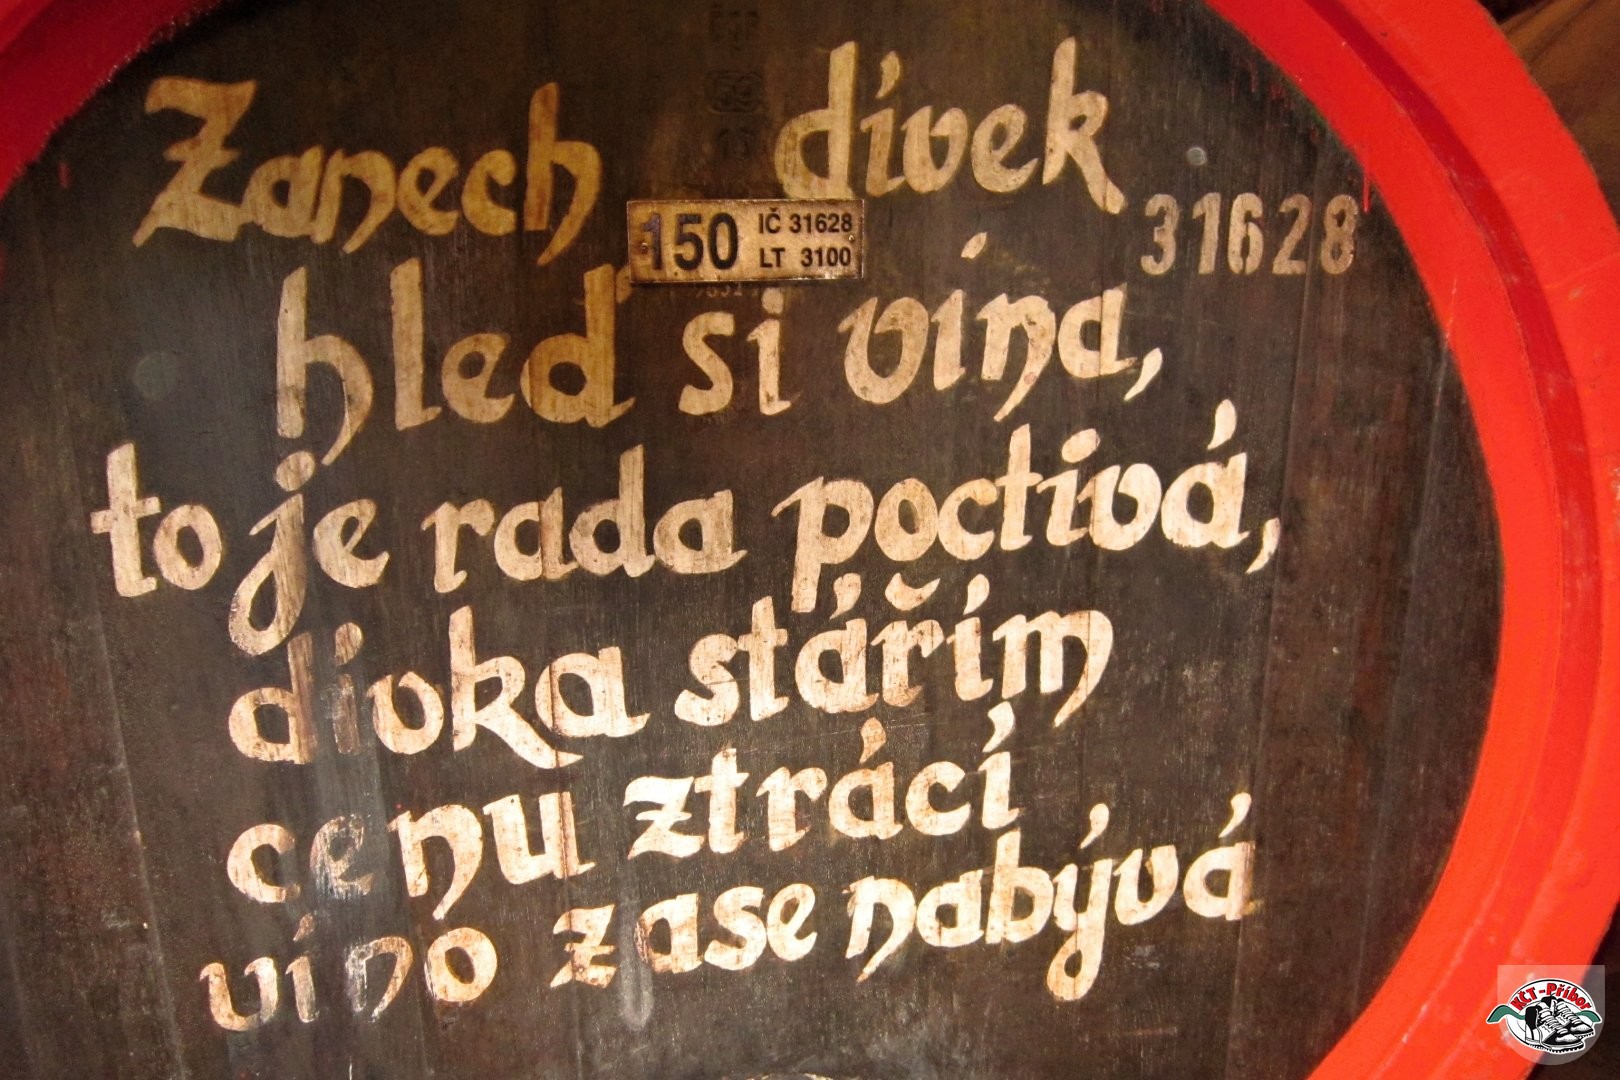 Zanech dívek
150 IČ 31628
LT 3100
31628
hleď si vína,
to je rada poctivá,
dívka stářím
cenu ztrácí
víno zase nabývá
KČT-Příbor